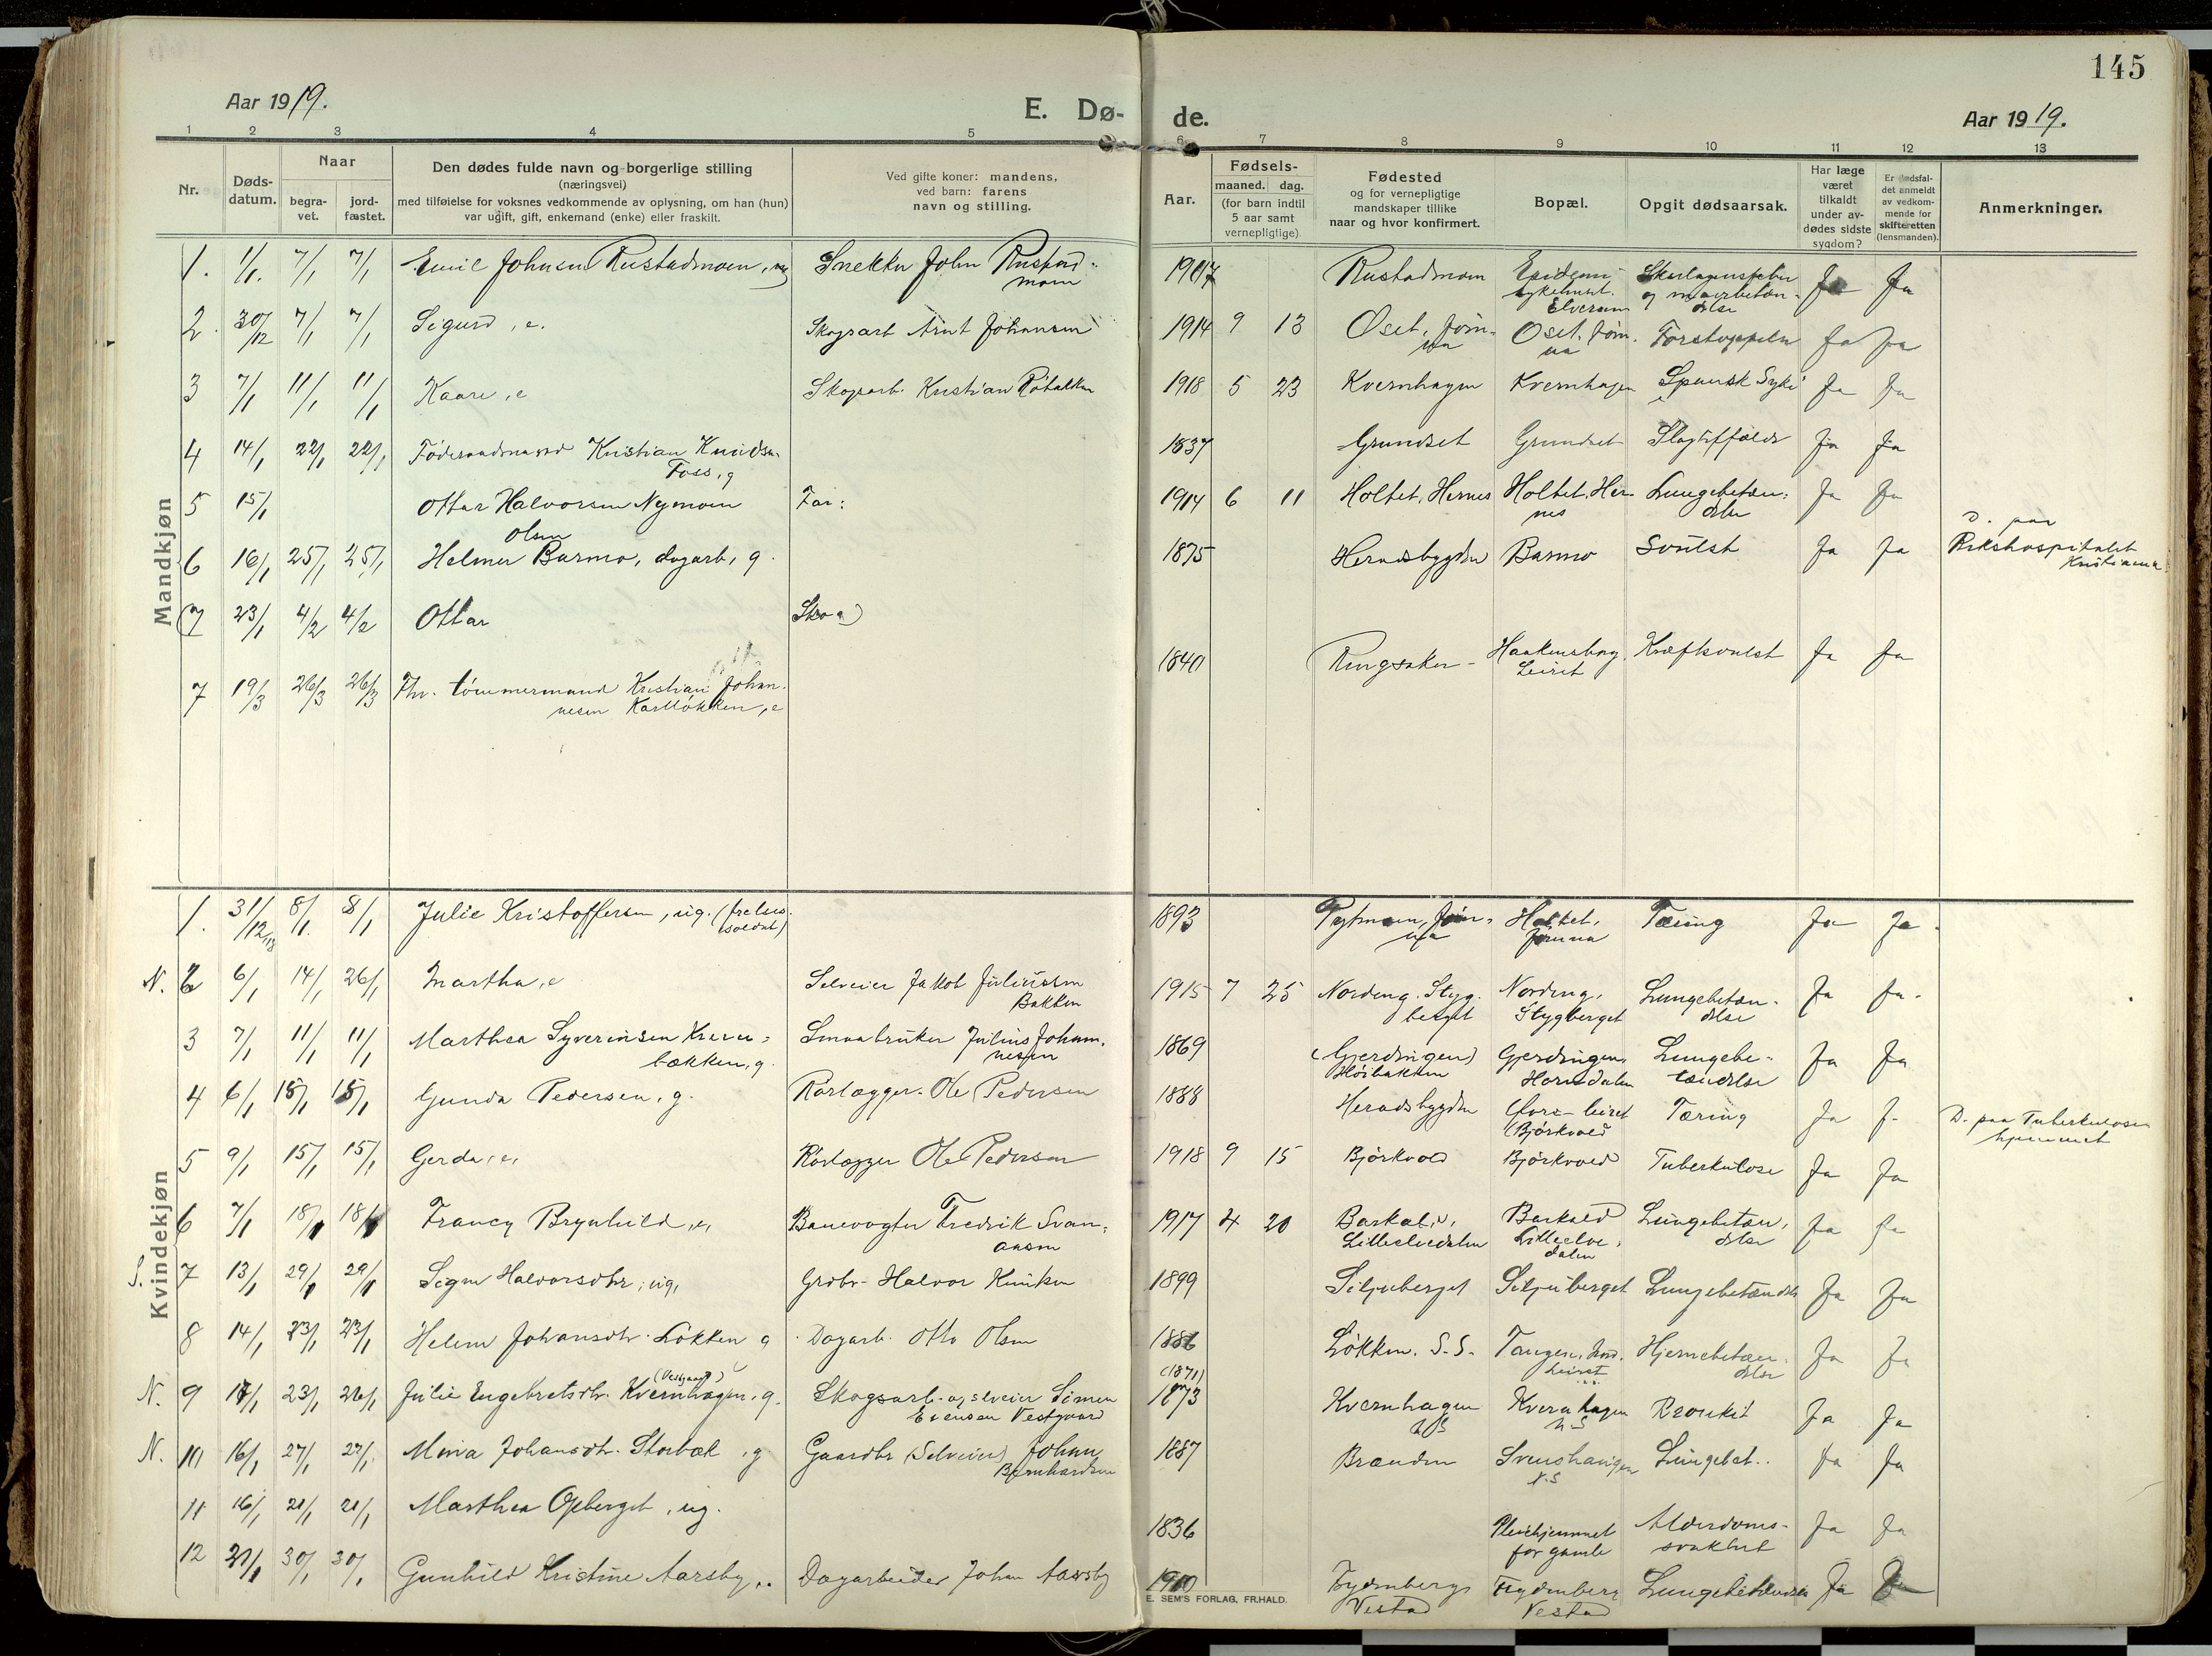 145
Aar 1919.
E. Dø-
de.
Aar 1919.
1 2 3 4 5 6 7 8 9 10 11 12 13
Nr.
Døds-
datum.
Naar
begra-
vet.
jord-
fæstet.
Den dødes fulde navn og borgerlige stilling
(næringsvei)
med tilføielse for voksnes vedkommende av oplysning, om han (hun)
var ugift, gift, enkemand (enke) eller fraskilt.
Ved gifte koner: mandens,
ved barn: farens
navn og stilling.
Aar.
Fødsels-
maaned. dag.
(for barn indtil
5 aar samt
vernepligtige).
Fødested
og for vernepligtige
mandskaper tillike
naar og hvor konfirmert.
Bopæl.
Opgit dødsaarsak.
Har læge
været
tilkaldt
under av-
dødes sidste
sygdom?
Er dødsfal-
det anmeldt
av vedkom-
mende for
skifteretten
(lensmanden).
Anmerkninger.
Mandkjøn
1. 1/1. 7/1 7/1 Emil Johnsen Rustadmoen, ug Snekker John Rustad-
moen 1907 Rustadmoen Epidemi-
sykehuset.
Elverum Skarlagensfeber
og nyrebetæn-
delse Ja Ja
2. 30/12 7/1 7/1 Sigurd, e. Skogsarb Arnt Johansen 1914 9 13 Oset, Jøm-
na Oset, Jøm-
na Forstoppelse Ja Ja
3 7/1 11/1 11/1 Kaare, e Skogsarb. Kristian 1918 5 23 Kvernhagen Kvernhagen Spansk Syke Ja Ja
4 14/1 22/1 22/1 Føderaadsmand Kristian Knudsen
Foss, g 1837 Grundset Grundset Slagtilfælde Ja Ja
5 15/1 Ottar Halvorsen Nymoen Far: 1914 6 11 Holtet, Hernes Holtet, Her-
nes Lungebetæn-
delse Ja Ja
6 16/1 25/1 25/1 Helmer Olsen Barmo, dagarb, g. 1875 Heradsbygden Barmo Svulst Ja Ja D. paa
Rikshospitalet
Kristiania
(7 23/1 4/2 4/2 Ottar Sko a)
7 19/3 26/3 26/3 Fhv. tømmermand Kristian Johan-
nesen Karlløkken, e 1840 Ringsaker Haakensborg
Leiret Kræftsvulst Ja Ja
Kvindekjøn
1. 31/12 18 8/1. 8/1 Julie Kristoffersen, ug. (frelses-
soldat) 1893 Jøm-
na Holtet,
Jømna Tæring Ja Ja.
N. 2 6/1 14/1 26/1 Martha, e Selveier Jakob Juliussen
Bakken 1915 7 25 Nordeng. Styg-
berget Nordeng,
Stygberget Lungebetæn-
delse Ja Ja.
3 7/1 11/1 11/1 Marthea Syverinsen Kvern-
bækken, g. Smaabruker Julius Johan-
nesen 1869 (Gjerdingen)
Høibakken Gjerdingen
Horndalen Lungebe-
tændelse Ja Ja
4 6/1 15/1 15/1 Gunda Pedersen, g. Rørlægger Ole Pedersen 1888 Heradsbygden Leiret
(Bjørkvold Tæring Ja J. D. paa Tuberkulose
hjemmet
5 9/1 15/1 15/1 Gerda, e, Rørlægger Ole Pedersen 1918 9 15 Bjørkvold Bjørkvold Tuberkulose Ja Ja
6 7/1 18/1 18/1 Francy Brynhild, e, Banevogter Fredrik Svan-
aasen 1917 4 20 Barkald,
Lilleelvedalen Barkald
Lilleelve-
dalen Lungebetæn-
delse Ja Ja
S. 7 13/1 29/1 29/1 Sign Halvorsdtr, ug, Grdbr. Halvor 1899 Siljuberget Siljuberget Lungebetændelse Ja Ja
8 14/1 23/1 23/1 Helene Johansdtr. Løkken g Dagarb. Otto Olsen 1886 Løkken. S.S. Tangen,
Leiret Hjernebetæn-
delse Ja Ja
N. 9 17/1 23/1 26/1 Julie Engebretsdtr. Kvernhagen, g. (Vestgaard) Skogsarb. og selveier Simen
Evensen Vestgaard (1871)
1873 Kvernhagen
N.S Kvernhagen
N.S Bronkit Ja Ja
N. 10 16/1 27/1 27/1. Mina Johansdtr. Storbæk, g Gaardbr (Selveier) Johan
Bernhardsen 1887 Brænden Svenshaugen
N.S Lungebet.. Ja Ja
11 16/1 21/1 21/1 Marthea Opberget, ug. 1836 Pleiehjemmet
for gamle Alderdoms-
svakhet Ja Ja
12 21/1 30/1 30/1 Gunhild Kristine Aarsby,. Dagarbeider Johan Aarsby 1910 Frydenberg
Vestad Frydenberg
Vestad Lungebetændelse Ja Ja
E. SEM'S FORLAG, FR.HALD.